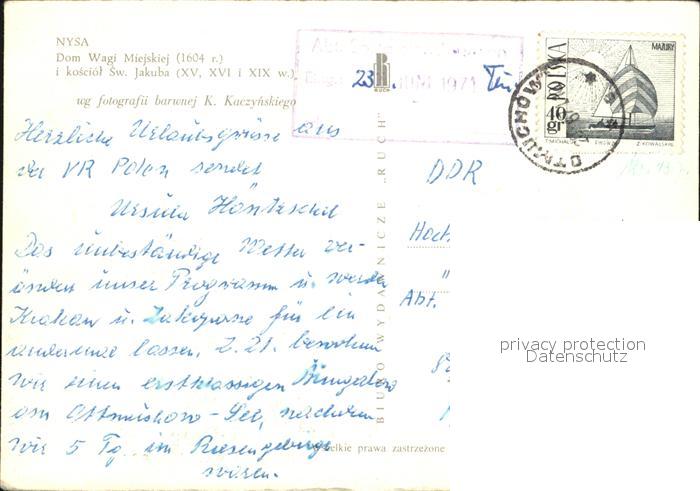 NYSA
Dom Wagi Miejskiej (1604 r.)
i kościół Św. Jakuba (XV, XVI i XIX w.)
wg fotografii barwnej K. Kaczyńskiego
RUCH
23. JUNI 1971
POLSKA
MAZURY
40 gr
T. MICHALUK
Z. KOWALSKI
OTMUCHÓW
BIURO WYDAWNICZE „RUCH"
Wszelkie prawa zastrzeżone
Herzliche Urlaubsgrüsse aus
der VR Polen sendet
Ursula
Das unbeständige Wetter ver-
änderte unser Programm u. werden
Krakau u. Zakopane für ein
andermal lassen. Z. Zt. bewohnen
wir einen erstklassigen Bungalow
am Ottmuchow-See, nachdem
wir 5 Tg. im Riesengebirge
waren.
DDR
Hoch.
"
Abt.
privacy protection
Datenschutz